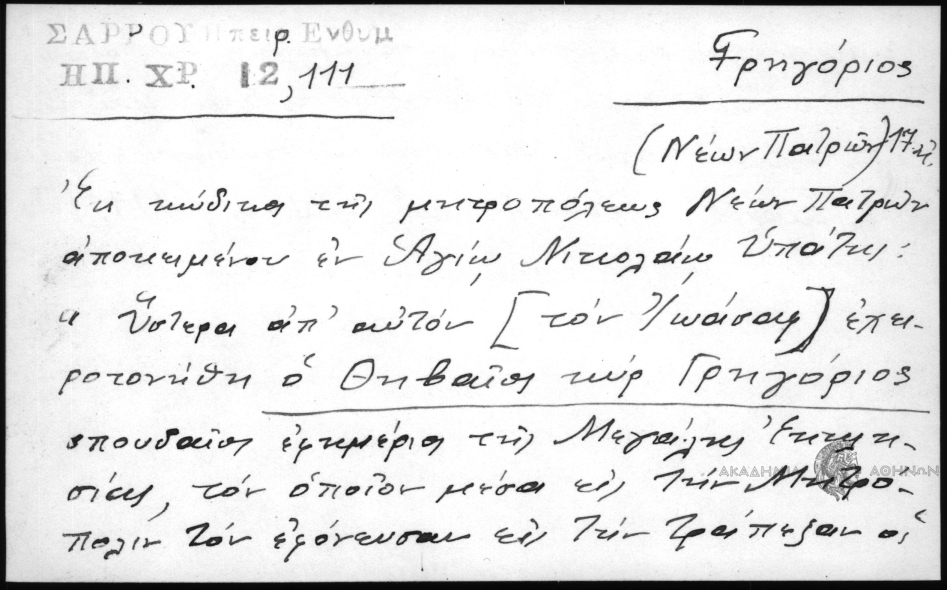 ΣΑΡΡΟΥ Ηπειρ. Ενθυμ
ΗΠ. ΧΡ. 12, 111
Γρηγόριος
(Νέων Πατρῶν) 17 αἰ.
Ἐκ κώδικα τῆς μητροπόλεως Νέων Πατρῶν
ἀποκειμένου ἐν Ἁγίῳ Νικολάῳ Ὑπάτης:
« Ὕστερα ἀπ' αὐτόν [τόν Ἰωάσαφ] ἐχει-
ροτονήθη ὁ Θηβαῖος κύρ Γρηγόριος
σπουδαῖος ἐφημέριος τῆς Μεγάλης Ἐκκλη-
σίας, τόν ὁποῖον μέσα εἰς τήν Μητρό-
πολιν τόν ἐφόνευσαν εἰς τήν τράπεζαν οἱ
ΑΚΑΔΗΜΙΑ ΑΘΗΝΩΝ